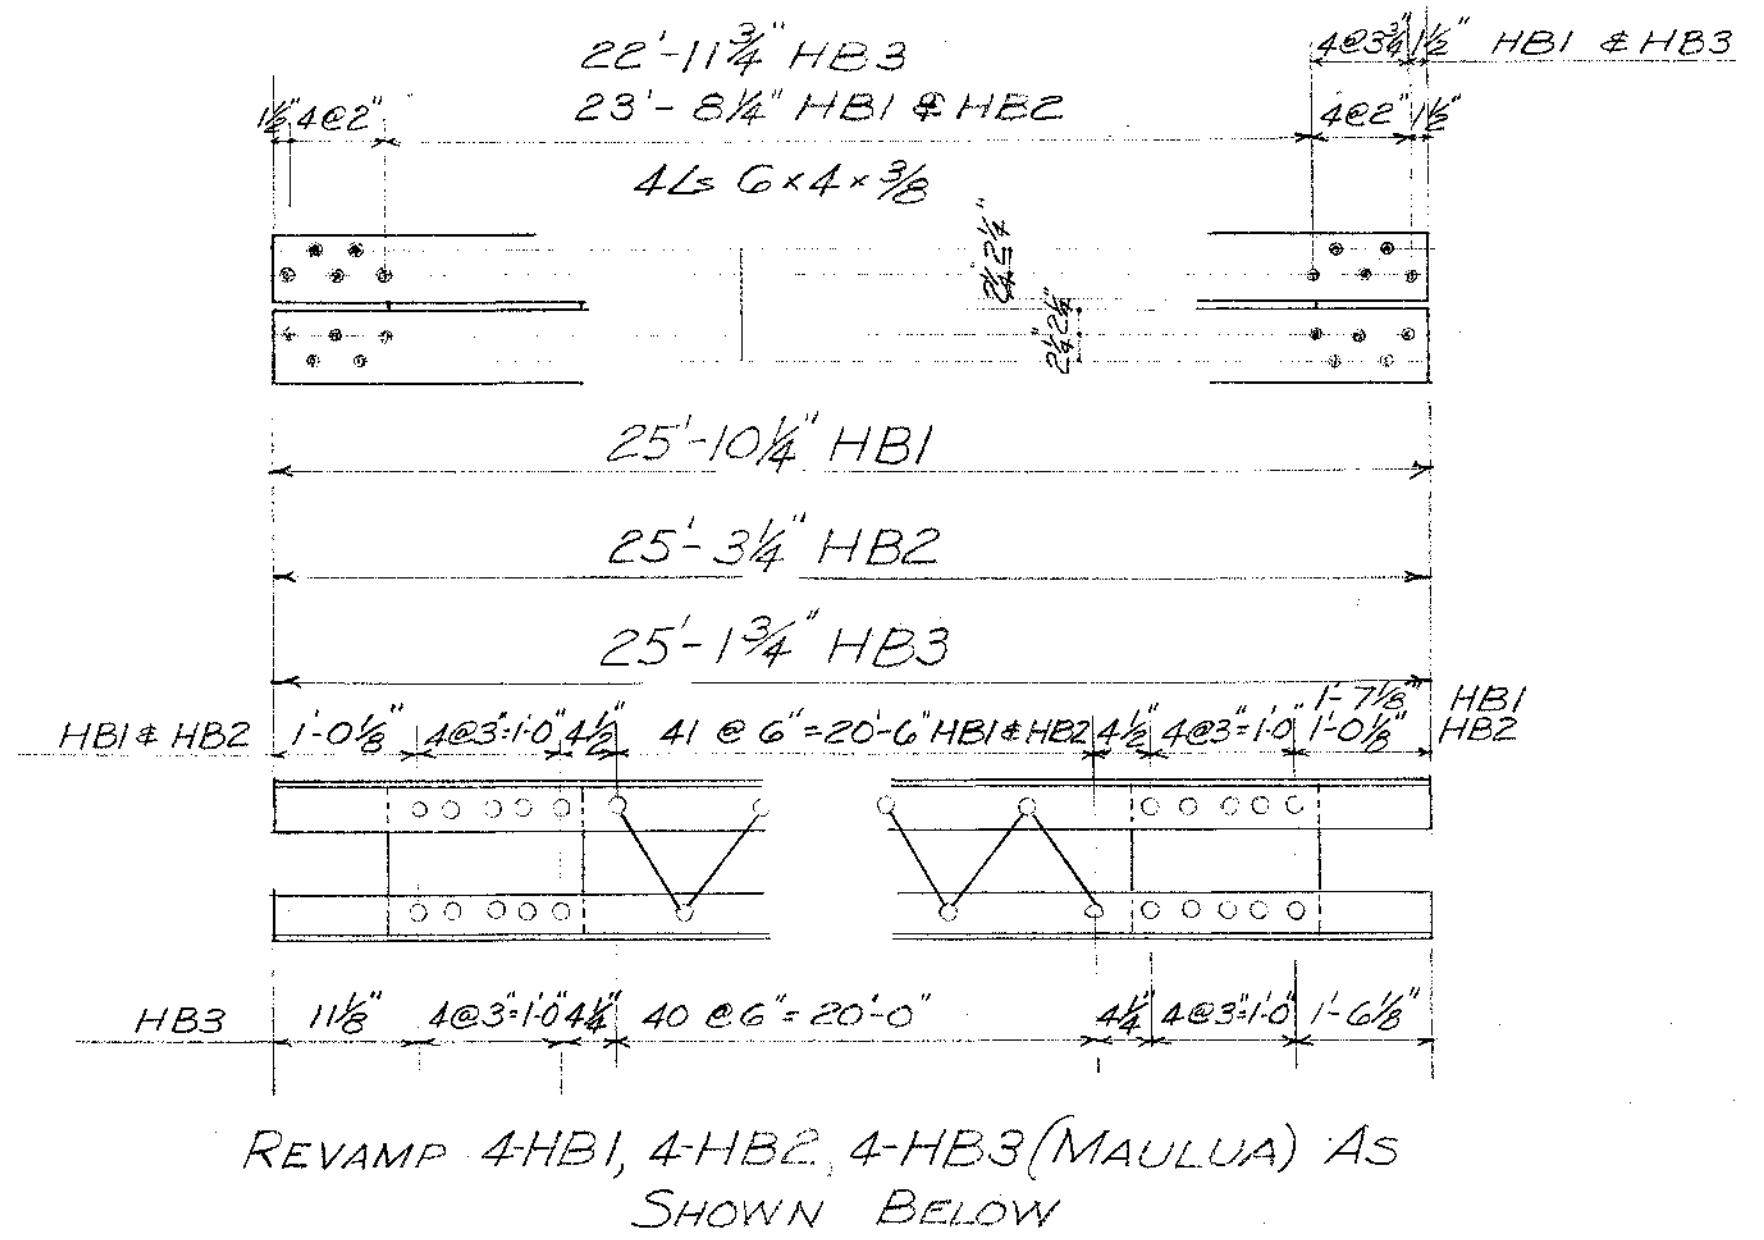 22'-11¾" HB3
4@3¾" 1½" HB1 & HB3
1½" 4@2"
23'-8¼" HB1 & HB2
4@2" 1½"
4Ls 6×4×⅜
2¼" 2¼"
2¼" 2¼"
25'-10¼" HB1
25'-3¼" HB2
25'-1¾" HB3
1'-7⅛" HB1
HB1 & HB2 1'-0⅛" 4@3"=1'-0" 4½" 41 @ 6"=20'-6" HB1 & HB2 4½" 4@3"=1'-0" 1'-0⅛" HB2
HB3 11⅛" 4@3"=1'-0" 4¼" 40 @ 6"=20'-0" 4¼" 4@3"=1'-0" 1'-6⅛"
REVAMP 4-HB1, 4-HB2, 4-HB3 (MAULUA) AS
SHOWN BELOW